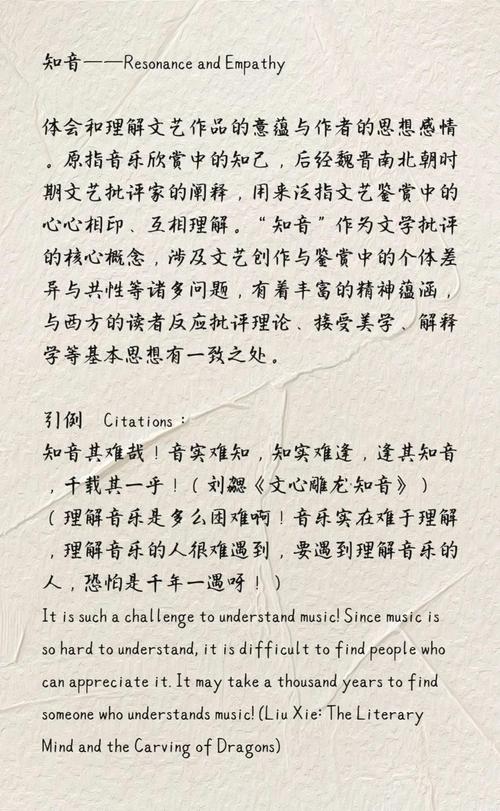 知音——Resonance and Empathy
体会和理解文艺作品的意蕴与作者的思想感情
。原指音乐欣赏中的知己，后经魏晋南北朝时
期文艺批评家的阐释，用来泛指文艺鉴赏中的
心心相印、互相理解。“知音”作为文学批评
的核心概念，涉及文艺创作与鉴赏中的个体差
异与共性等诸多问题，有着丰富的精神蕴涵，
与西方的读者反应批评理论、接受美学、解释
学等基本思想有一致之处。
引例 Citations：
知音其难哉！音实难知，知实难逢，逢其知音
，千载其一乎！（刘勰《文心雕龙·知音》）
（理解音乐是多么困难啊！音乐实在难于理解
，理解音乐的人很难遇到，要遇到理解音乐的
人，恐怕是千年一遇呀！）
It is such a challenge to understand music! Since music is
so hard to understand, it is difficult to find people who
can appreciate it. It may take a thousand years to find
someone who understands music! (Liu Xie: The Literary
Mind and the Carving of Dragons)